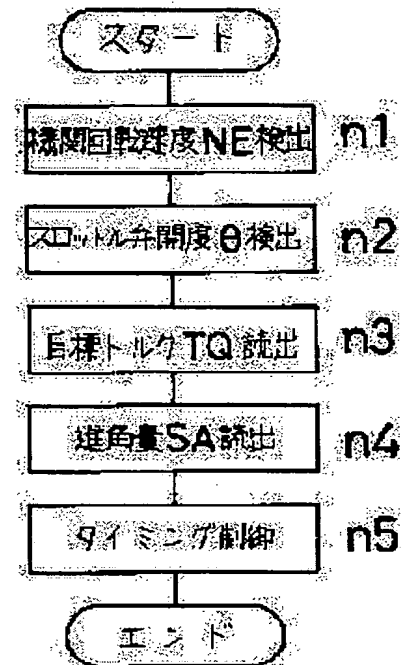 スタート
機関回転速度NE検出 n1
スロットル弁開度θ検出 n2
目標トルクTQ読出 n3
進角量SA読出 n4
タイミング制御 n5
エンド